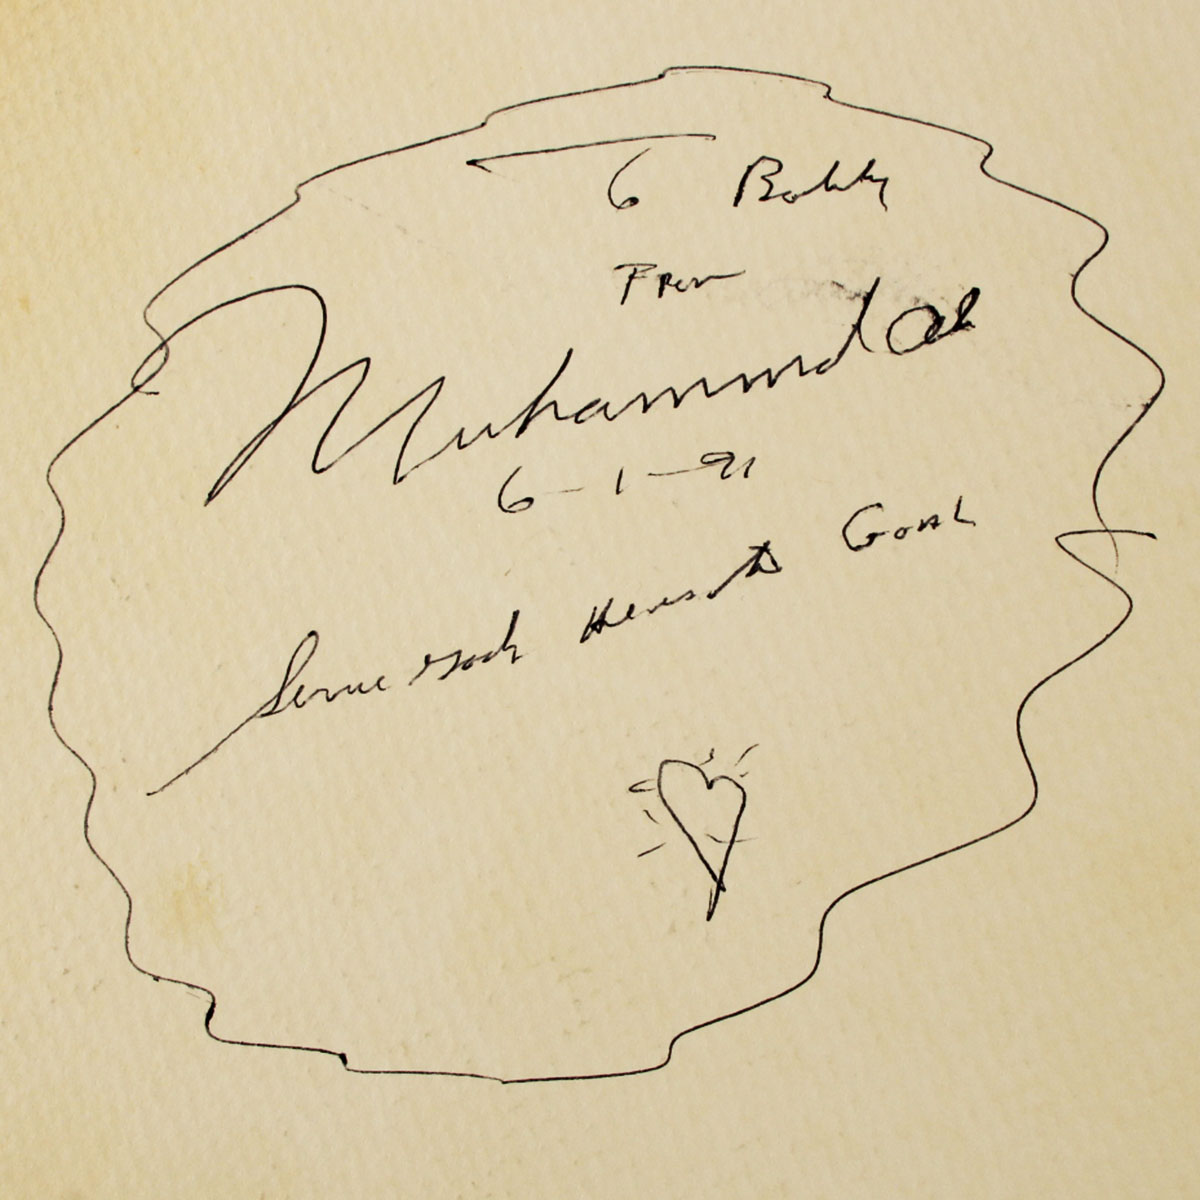 To Bobby
From
Muhammad Ali
6-1-91
Serve God he is the Goal